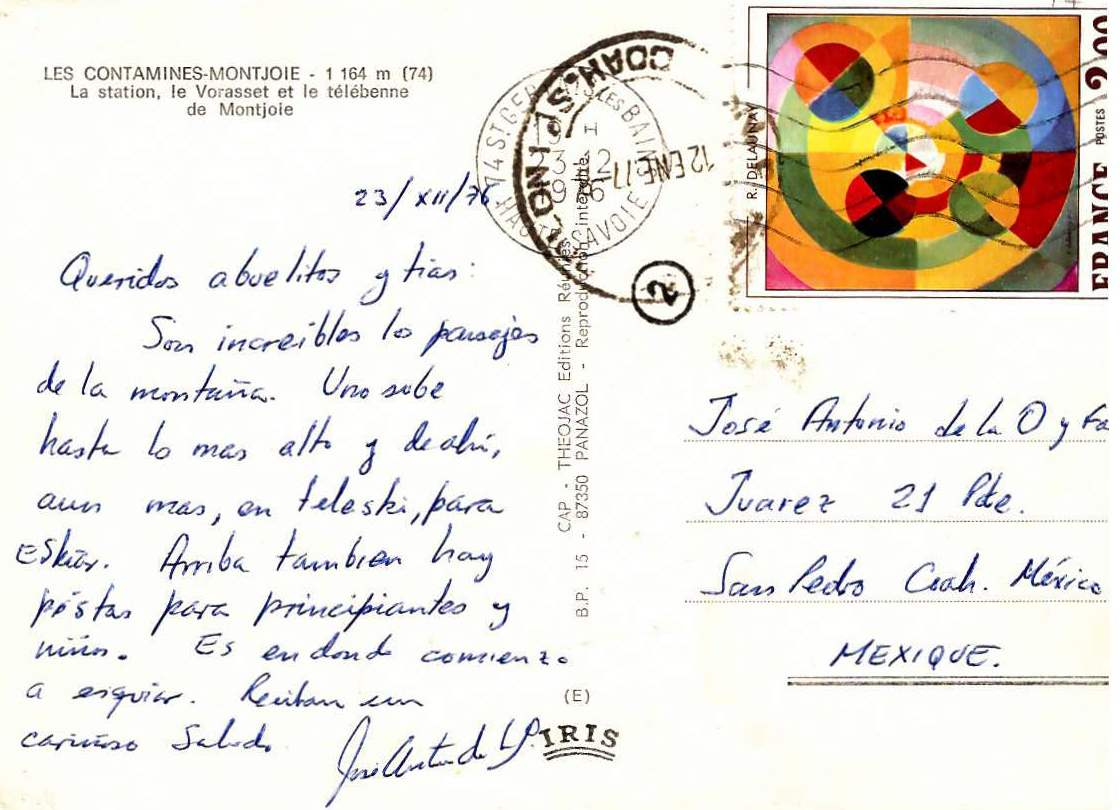 LES CONTAMINES-MONTJOIE - 1 164 m (74)
La station, le Vorasset et le télébenne
de Montjoie
23/XII/76
Queridos abuelitos y tias:
Son increibles los paisajes
de la montaña. Uno sube
hasta lo mas alto y de ahí,
aun mas, en teleski, para
eskiar. Arriba tambien hay
pistas para principiantes y
niños. Es en donde comienzo
a esquiar. Reciban un
cariñoso Saludo
José Antonio de la O.
B.P. 15 - 87350 PANAZOL - Reproduction interdite
CAP - THEOJAC Editions Réunies
(E)
IRIS
74 ST GERVAIS LES BAINS
HAUTE SAVOIE
COAH.
12 ENE 77
2
R. DELAUNAY
FRANCE POSTES 2,00
José Antonio de la O y Fa
Juarez 21 Pte.
San Pedro Coah. México
MEXIQUE.